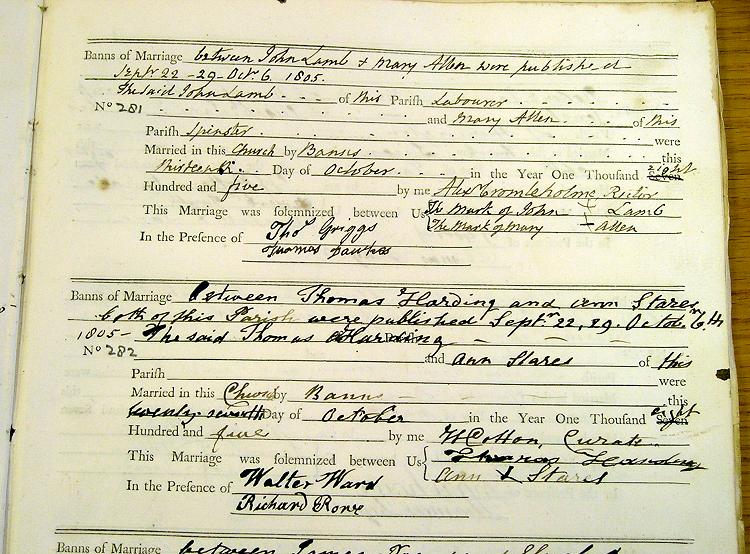 Banns of Marriage between John Lamb & Mary Allen were published
Septr 22 - 29 - Octr 6. 1805.
The said John Lamb of this Parish Labourer
No 281 and Mary Allen of this
Parish Spinster were
Married in this Church by Banns this
thirteenth Day of October in the Year One Thousand eight Seven
Hundred and five by me Alex Cromleholme Rector
This Marriage was solemnized between Us The Mark of John + Lamb
The Mark of Mary + Allen
In the Presence of Thos Griggs
Thomas
Banns of Marriage between Thomas Harding and Ann Stares
both of this Parish were published Septm 22, 29. October 6th
1805 - The said Thomas Harding
No 282 and Ann Stares of this
Parish were
Married in this Church by Banns this
twenty seventh Day of October in the Year One Thousand eight Seven
Hundred and five by me H Cotton, Curate
This Marriage was solemnized between Us Thomas Harding
Ann + Stares
In the Presence of Walter Ward
Richard
Banns of Marriage between James